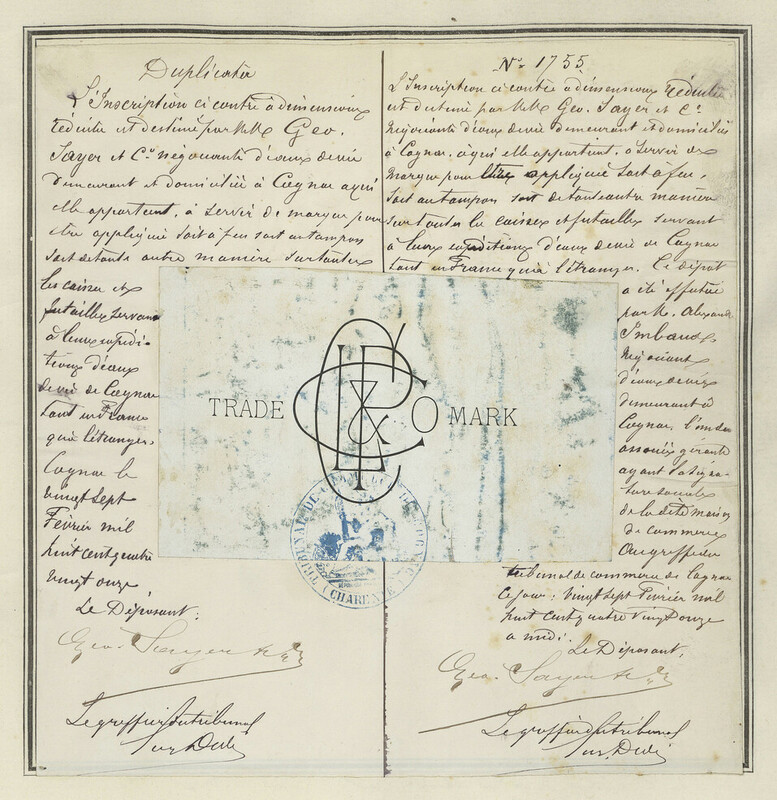 Duplicata
L'Inscription ci contre à dimensions
réduites est destinée par MM Geo.
Sayer et Co négociants d'eaux de vie
demeurant et domiciliés à Cognac à qui
elle appartient, à servir de marque pour
être appliquée soit à feu soit au tampon
soit de toute autre manière sur toutes
les caisses et
futailles servant
à leurs expédi-
tions d'eaux
de vie de Cognac
tant en France
qu'à l'étranger.
Cognac le
vingt sept
Février mil
huit cent quatre
vingt onze
Le Déposant:
Geo. Sayer & Co
Le greffier du tribunal
No 1755
L'Inscription ci contre à dimensions réduites
est destinée par MM Geo. Sayer et Co
Négociants d'eaux de vie demeurant et domiciliés
à Cognac, à qui elle appartient, à servir de
marque pour être appliquée soit à feu,
soit au tampon soit de toute autre manière
sur toutes les caisses et futailles servant
à leurs expéditions d'eaux de vie de Cognac
tant en France qu'à l'étranger. Ce dépôt
a été effectué
par M. Alexandre
Imbaud
Négociant
d'eaux de vie
demeurant à
Cognac, l'un des
associés gérants
ayant la signa-
ture sociale
de la dite maison
de commerce
au greffe du
tribunal de commerce de Cognac
ce jour: vingt sept Février mil
huit cent quatre vingt onze
a midi.
Le Déposant:
Geo. Sayer & Co
Le greffier du tribunal
TRADE MARK
TRIBUNAL DE COMMERCE DE COGNAC
(CHARENTE)